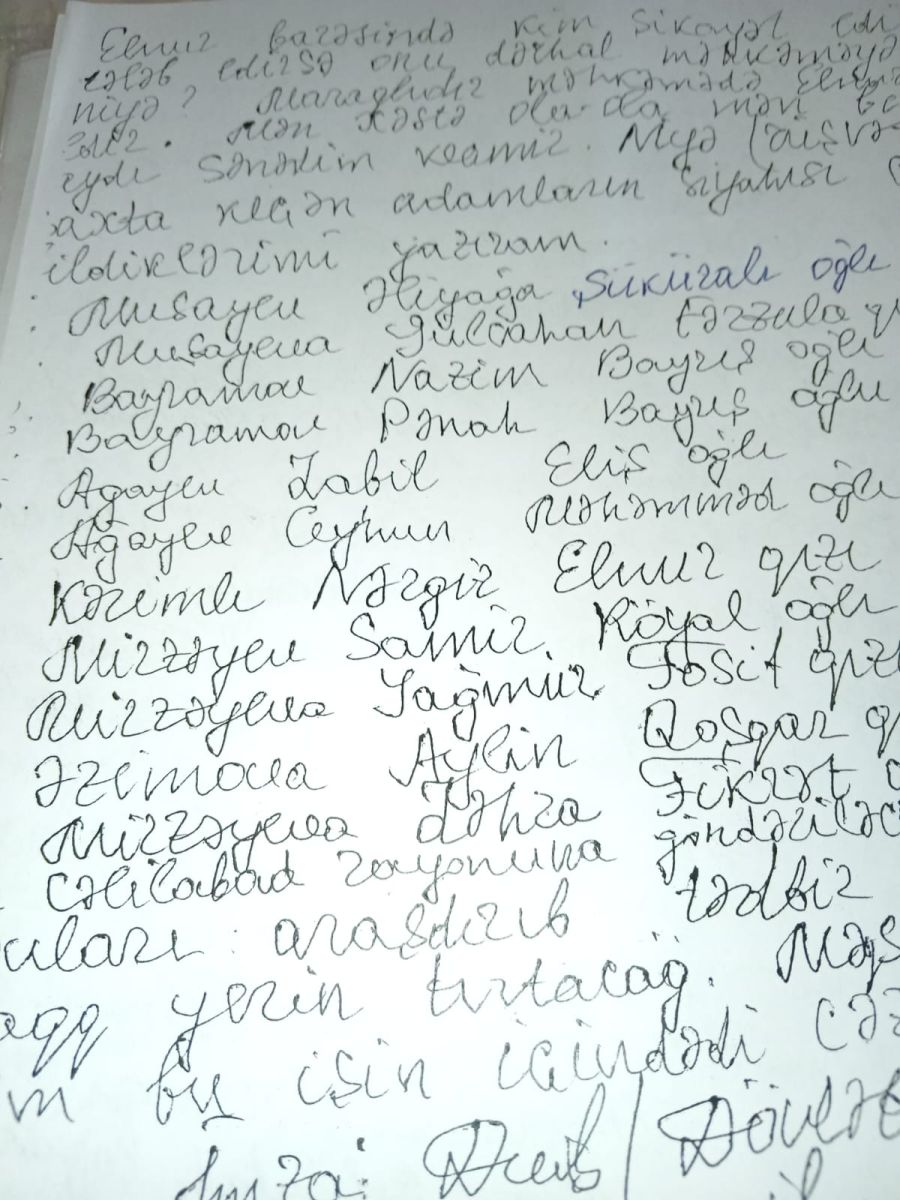 Elnur barəsində kim şikayət edi
tələb edirsə onu dərhal məhkəməyə
niyə? Maraqlıdır məhkəmədə Elnur
Mən xəstə ola-ola mən
eydi sənədim keçmir. Niyə
axta keçən adamların siyahısı
ildiklərimi yazıram.
Musayev Əliyağa Şüküralı oğlı
Musayeva Gülcahan
Bayramov Nazim Bayrış oğlı
Bayramov Pənah Bayrış oğlu
Agayev Zabil Eliş oğlı
Ağayev Ceyhun Məhəmməd oğlu
Kərimlı Nərgiz Elnur qızı
Mirzəyev Samir Röyal oğlı
Mirzəyeva Yağmur qızı
Əzimova Aylin Qoşqar
Mirzəyeva Zəhra Fikrət
Cəlilabad rayonuna göndərilə
uları araşdırıb tədbir
aqq yerin tutacağ. Məs
m bu işin içindədi
İmza: